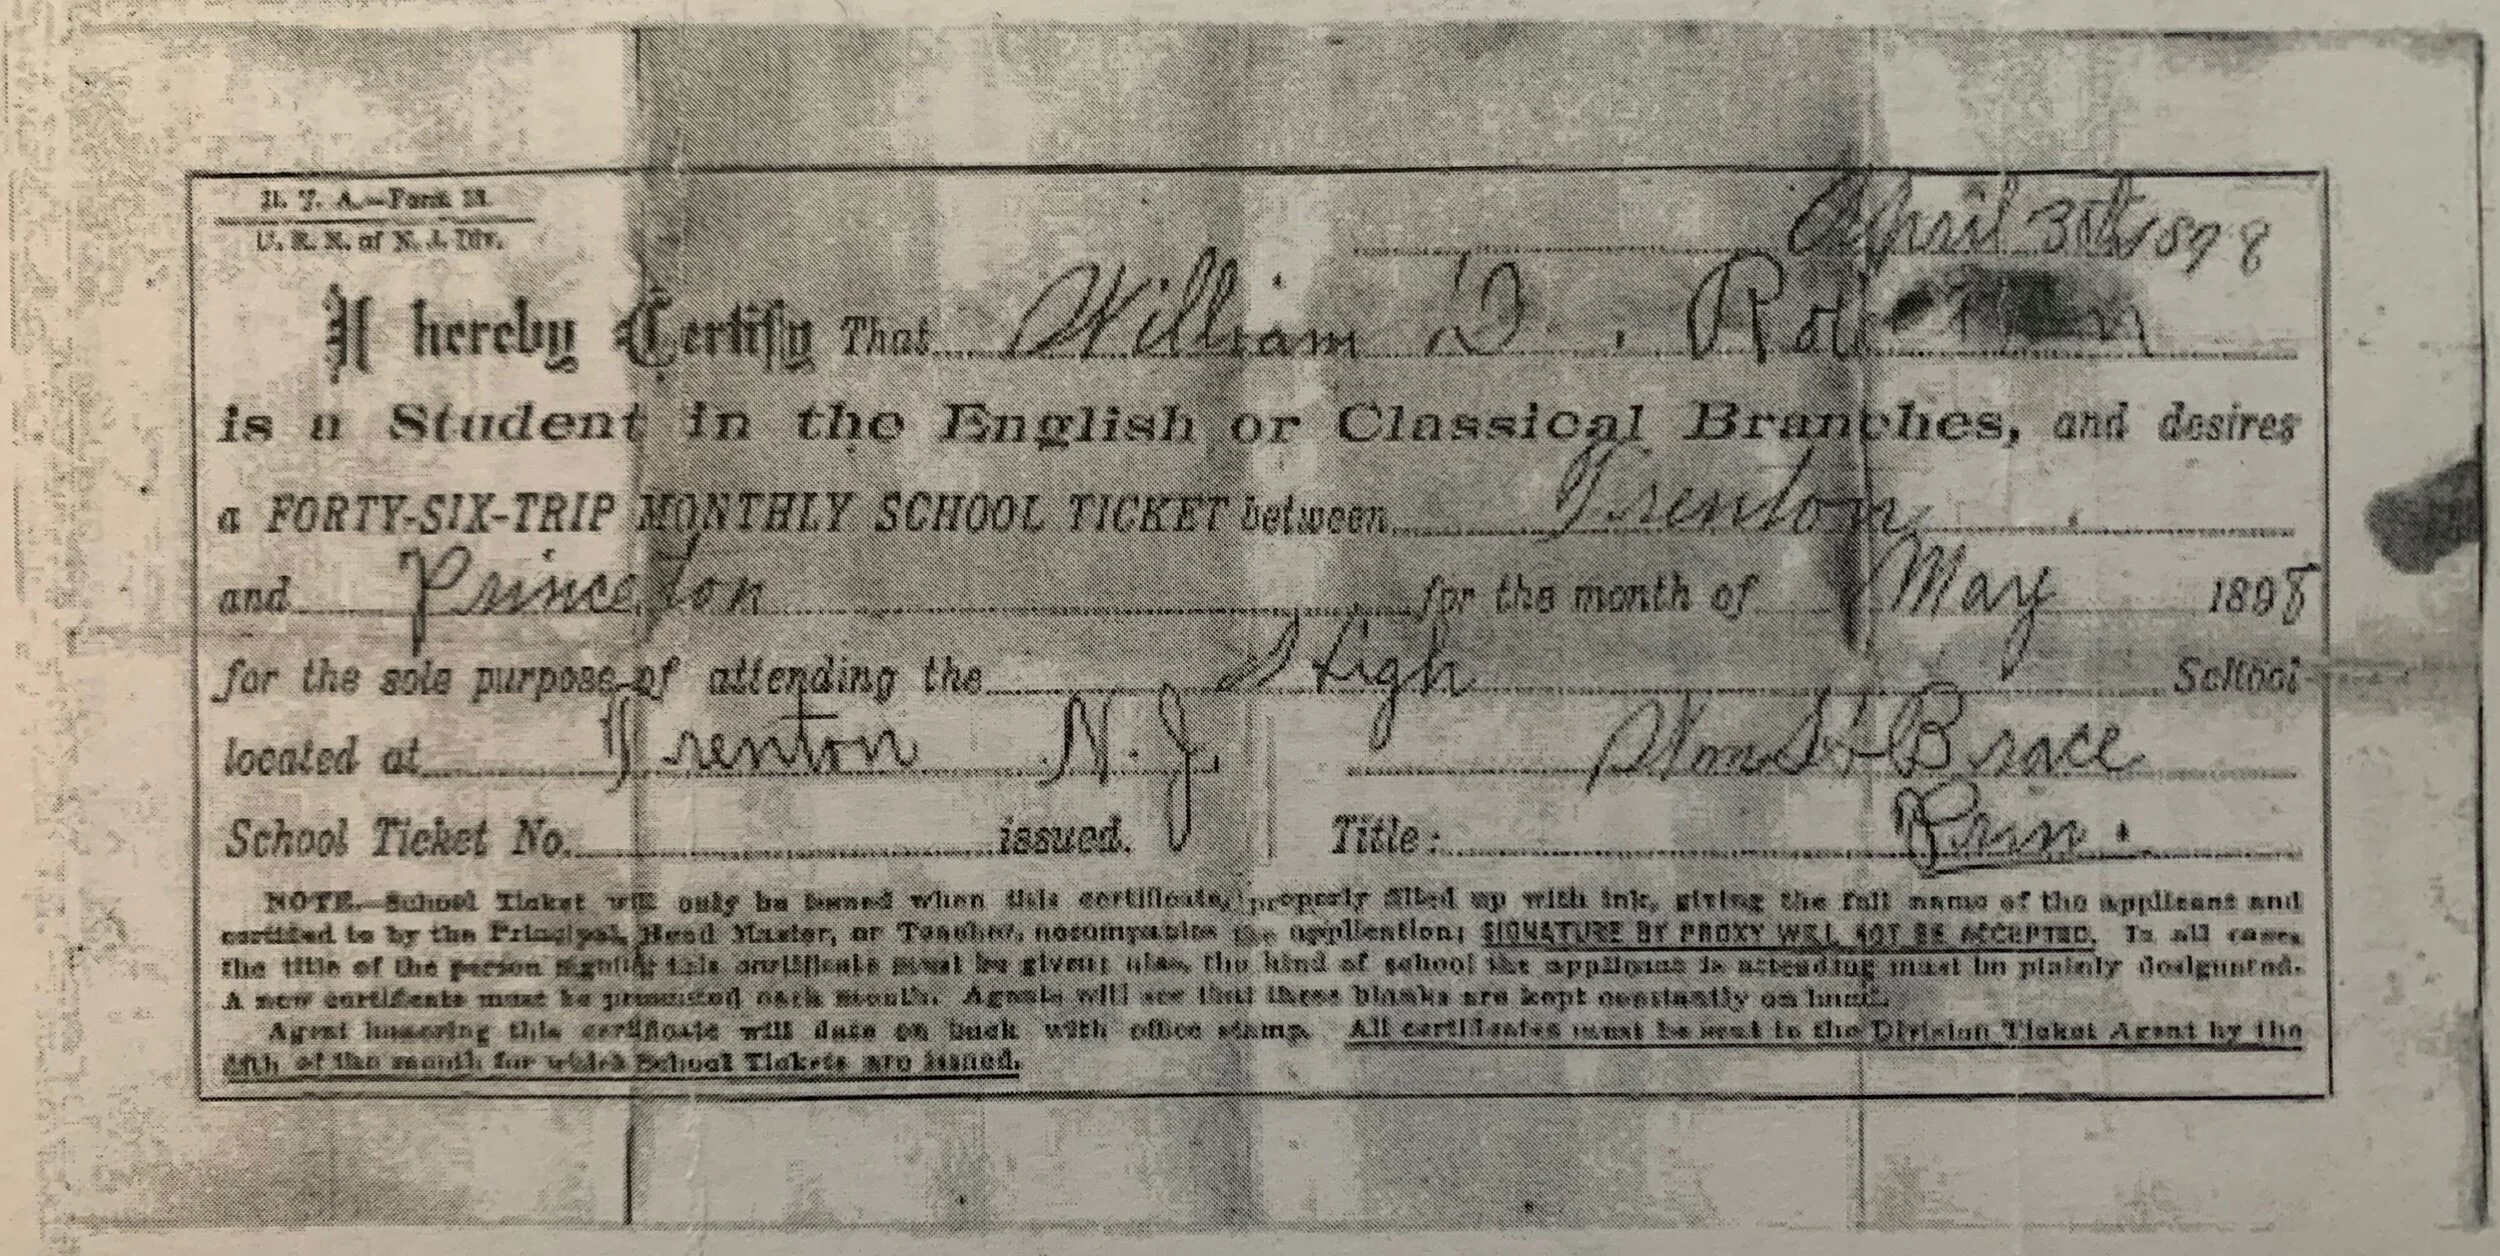 April 30th 1898
U. R. R. of N. J. Div.
I hereby Certify That William D. Robeson
is a Student in the English or Classical Branches, and desires
a FORTY-SIX-TRIP MONTHLY SCHOOL TICKET between Trenton
and Princeton for the month of May 1898
for the sole purpose of attending the High School
located at Trenton N. J. Wm H Brace
School Ticket No. issued. Title: Prin.
NOTE.—School Ticket will only be issued when this certificate, properly filled up with ink, giving the full name of the applicant and
certified to by the Principal, Head Master, or Teacher, accompanies the application; SIGNATURE BY PROXY WILL NOT BE ACCEPTED. In all cases
the title of the person signing this certificate must be given; also, the kind of school the applicant is attending must be plainly designated.
A new certificate must be presented each month. Agents will see that these blanks are kept constantly on hand.
Agent honoring this certificate will date on back with office stamp. All certificates must be sent to the Division Ticket Agent by the
of the month for which School Tickets are issued.